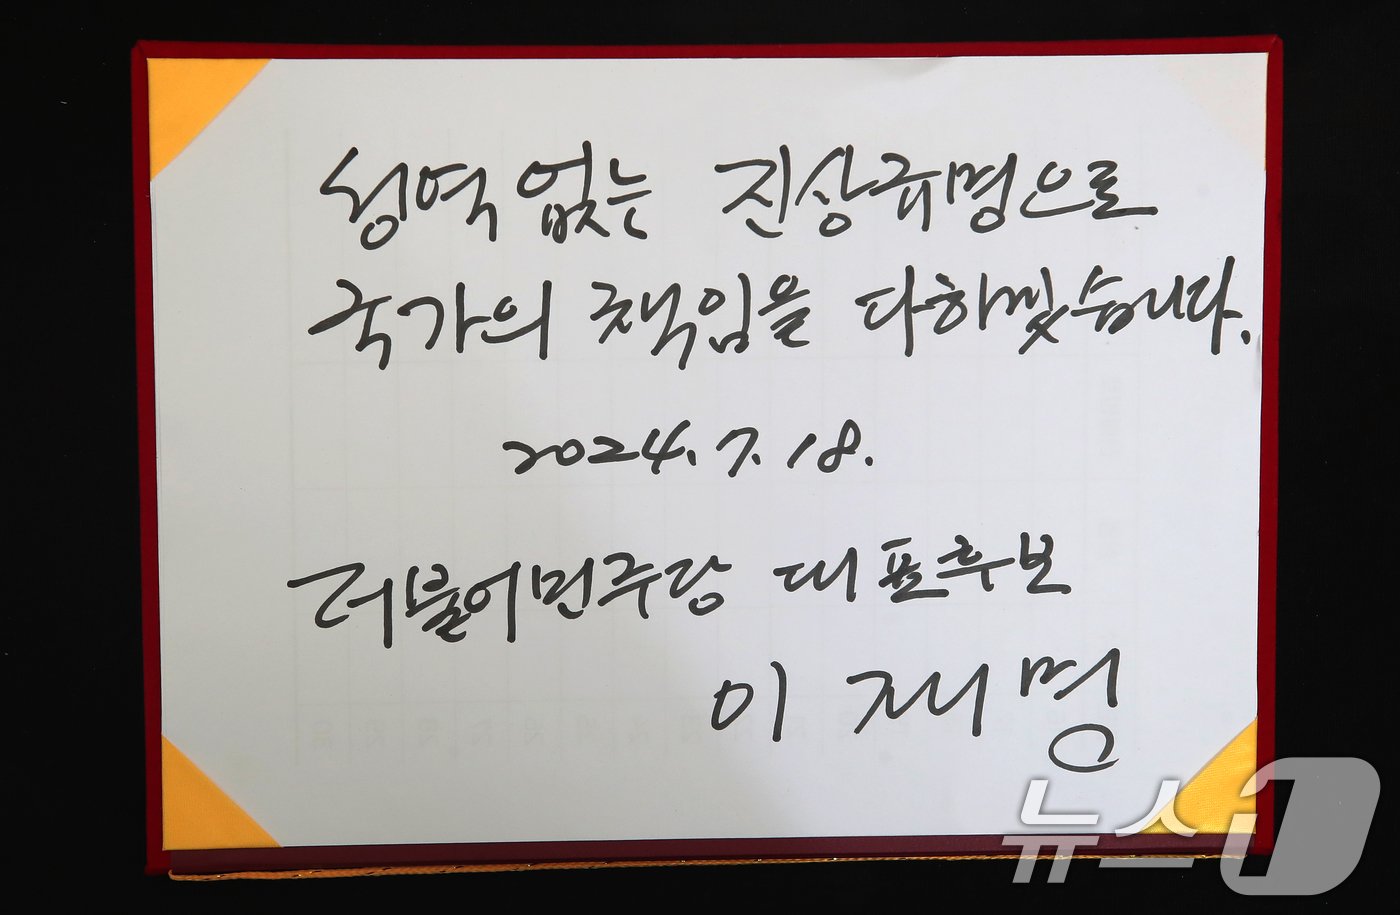 성역 없는 진상규명으로
국가의 책임을 다하겠습니다.
2024. 7. 18.
더불어민주당 대표후보
이재명
뉴스1